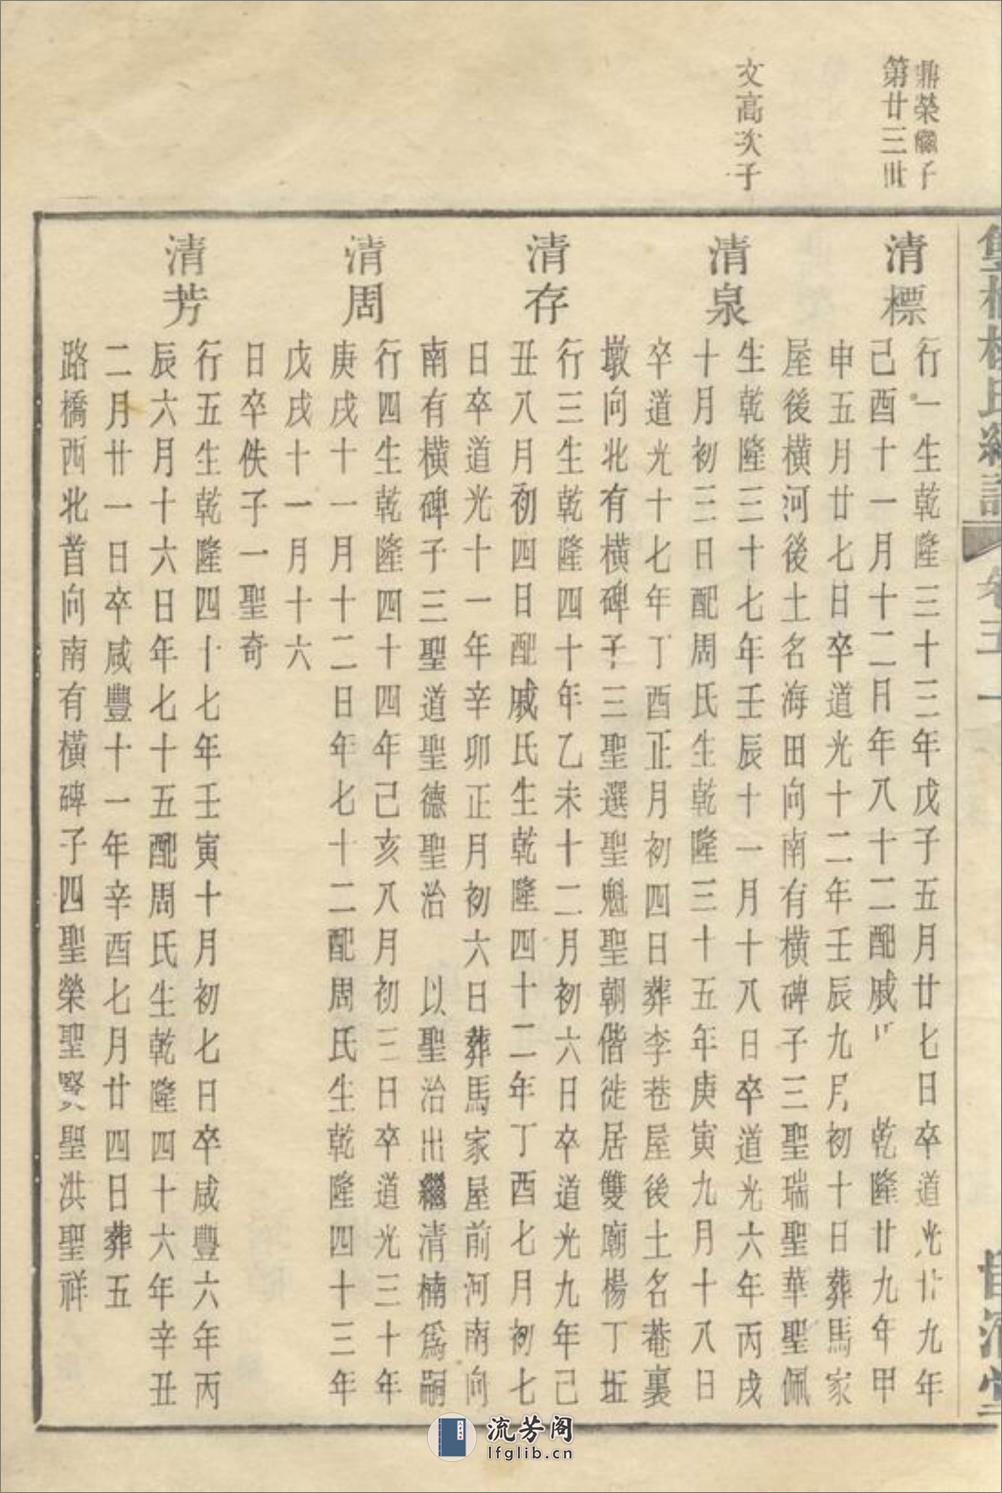 鼎榮繼子
第廿三世
文高次子
雙橋楊氏續譜
卷五十
清標
行一生乾隆三十三年戊子五月廿七日卒道光廿九年
己酉十一月十二日年八十二配戚 乾隆廿九年甲
申五月廿七日卒道光十二年壬辰九月初十日葬馬家
屋後橫河後土名海田向南有橫碑子三聖瑞聖華聖佩
清泉
生乾隆三十七年壬辰十一月十八日卒道光六年丙戌
十月初三日配周氏生乾隆三十五年庚寅九月十八日
卒道光十七年丁酉正月初四日葬李巷屋後土名菴裏
墩向北有橫碑子三聖選聖魁聖朝偕徙居雙廟楊丁坵
清存
行三生乾隆四十年乙未十二月初六日卒道光九年己
丑八月初四日配戚氏生乾隆四十二年丁酉七月初七
日卒道光十一年辛卯正月初六日葬馬家屋前河南向
南有橫碑子三聖道聖德聖治 以聖治出繼清楠爲嗣
清周
行四生乾隆四十四年己亥八月初三日卒道光三十年
庚戌十一月十二日年七十二配周氏生乾隆四十三年
戊戌十一月十六
日卒佚子一聖奇
清芳
行五生乾隆四十七年壬寅十月初七日卒咸豐六年丙
辰六月十六日年七十五配周氏生乾隆四十六年辛丑
二月廿一日卒咸豐十一年辛酉七月廿四日葬五
路橋西北首向南有橫碑子四聖榮聖賢聖洪聖祥
流芳阁
lfglib.cn